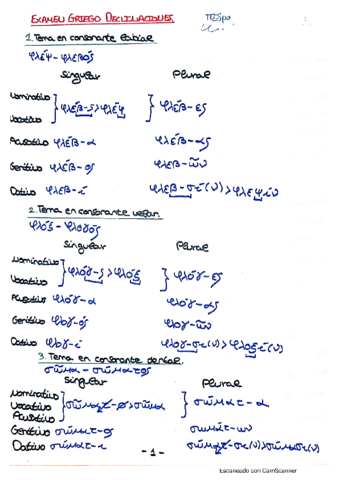 EXAMEN GRIEGO DECLINACIONES
1. Tema en consonante labial
φλέψ - φλεβός
Singular Plural
Nominativo
Vocativo } φλέβ-ς > φλέψ } φλέβ-ες
Acusativo φλέβ-α φλέβ-ας
Genitivo φλεβ-ός φλεβ-ῶν
Dativo φλεβ-ί φλεβ-σί(ν) > φλεψίν
2. Tema en consonante velar.
φλόξ - φλογός
Singular Plural
Nominativo
Vocativo } φλόγ-ς > φλόξ } φλόγ-ες
Acusativo φλόγ-α φλόγ-ας
Genitivo φλογ-ός φλογ-ῶν
Dativo φλογ-ί φλογ-σι(ν) > φλοξί(ν)
3. Tema en consonante dental.
σῶμα - σώματος
Singular Plural
Nominativo
Vocativo
Acusativo } σῶματ-ø > σῶμα } σώματ-α
Genitivo σώματ-ος σωμάτ-ων
Dativo σώματ-ι σώματ-σι(ν) > σώμασι(ν)
- 1 -
Escaneado con CamScanner